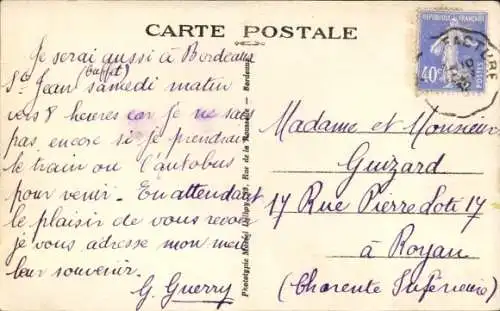 CARTE POSTALE
Je serai aussi à Bordeaux
(buffet)
St Jean samedi matin
vers 8 heures car je ne sais
pas encore si je prendrai
le train ou l'autobus
pour venir. En attendant
le plaisir de vous revoir
je vous adresse mon meil
leur souvenir.
G. Guerry
Phototypie Marcel Delboy, Rue de la Rousselle - Bordeaux
RÉPUBLIQUE FRANÇAISE
40c
POSTES
FACTURE
Madame et Monsieur
Guizard
17 Rue Pierre Loti 17
à Royan
(Charente Inférieure)